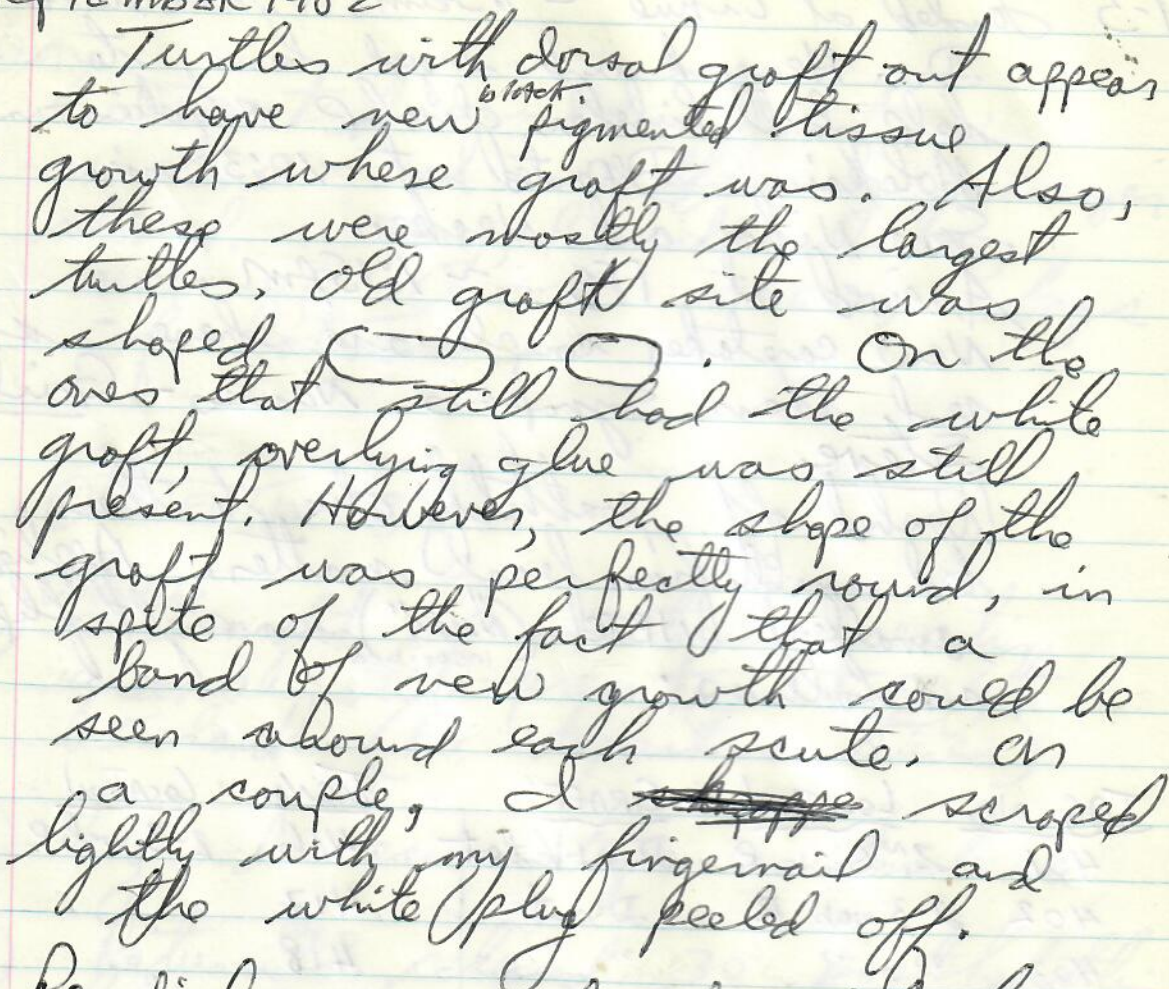 Turtles with dorsal graft out appear
to have new black pigmented tissue
growth where graft was. Also,
these were mostly the largest
turtles. Old graft site was
shaped . On the
ones that still had the white
graft, overlying glue was still
present. However, the shape of the
graft was perfectly round, in
spite of the fact that a
band of new growth could be
seen around each scute. On
a couple, I scraped
lightly with my fingernail and
the white plug peeled off.